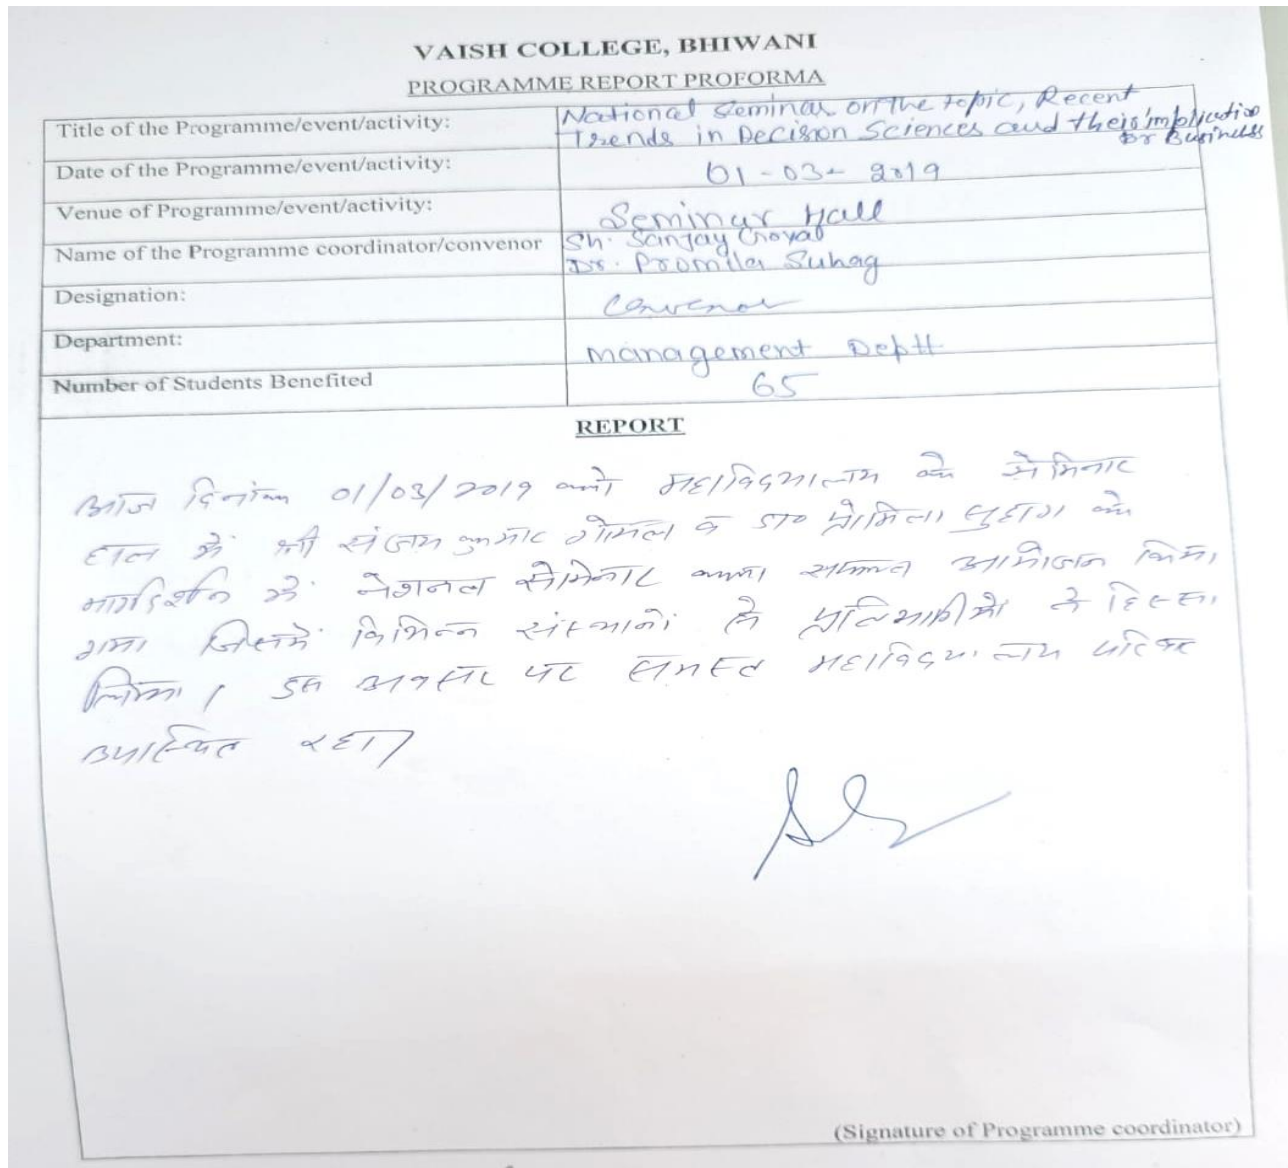 VAISH COLLEGE, BHIWANI
PROGRAMME REPORT PROFORMA
Title of the Programme/event/activity: National Seminar on the topic, Recent
Trends in Decision Sciences and their implication
for Business
Date of the Programme/event/activity: 01-03-2019
Venue of Programme/event/activity: Seminar Hall
Name of the Programme coordinator/convenor Sh. Sanjay Goyal
Dr. Promila Suhag
Designation: Convenor
Department: Management Deptt
Number of Students Benefited 65
REPORT
आज दिनांक 01/03/2019 को महाविद्यालय के सेमिनार
हाल में श्री संजय कुमार गोयल व डा० प्रोमिला सुहाग के
मार्गदर्शन में नेशनल सेमिनार का सफल आयोजन किया
गया जिसमें विभिन्न संस्थानों से प्रतिभागीयों ने हिस्सा
लिया। इस अवसर पर समस्त महाविद्यालय परिवार
उपस्थित रहा।
(Signature of Programme coordinator)